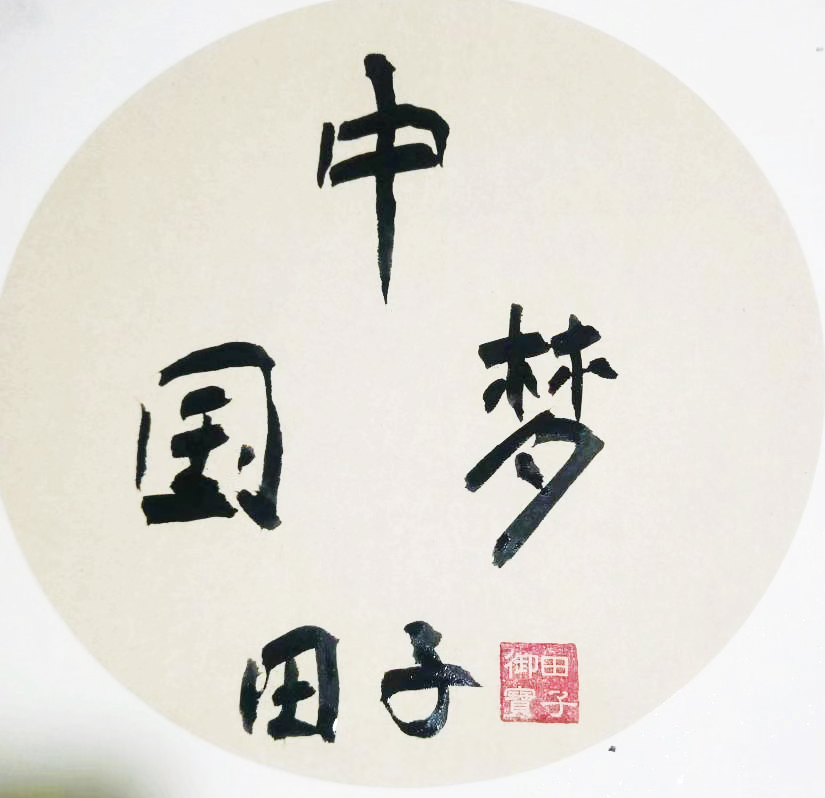 中
国梦
田子
田子
御寶